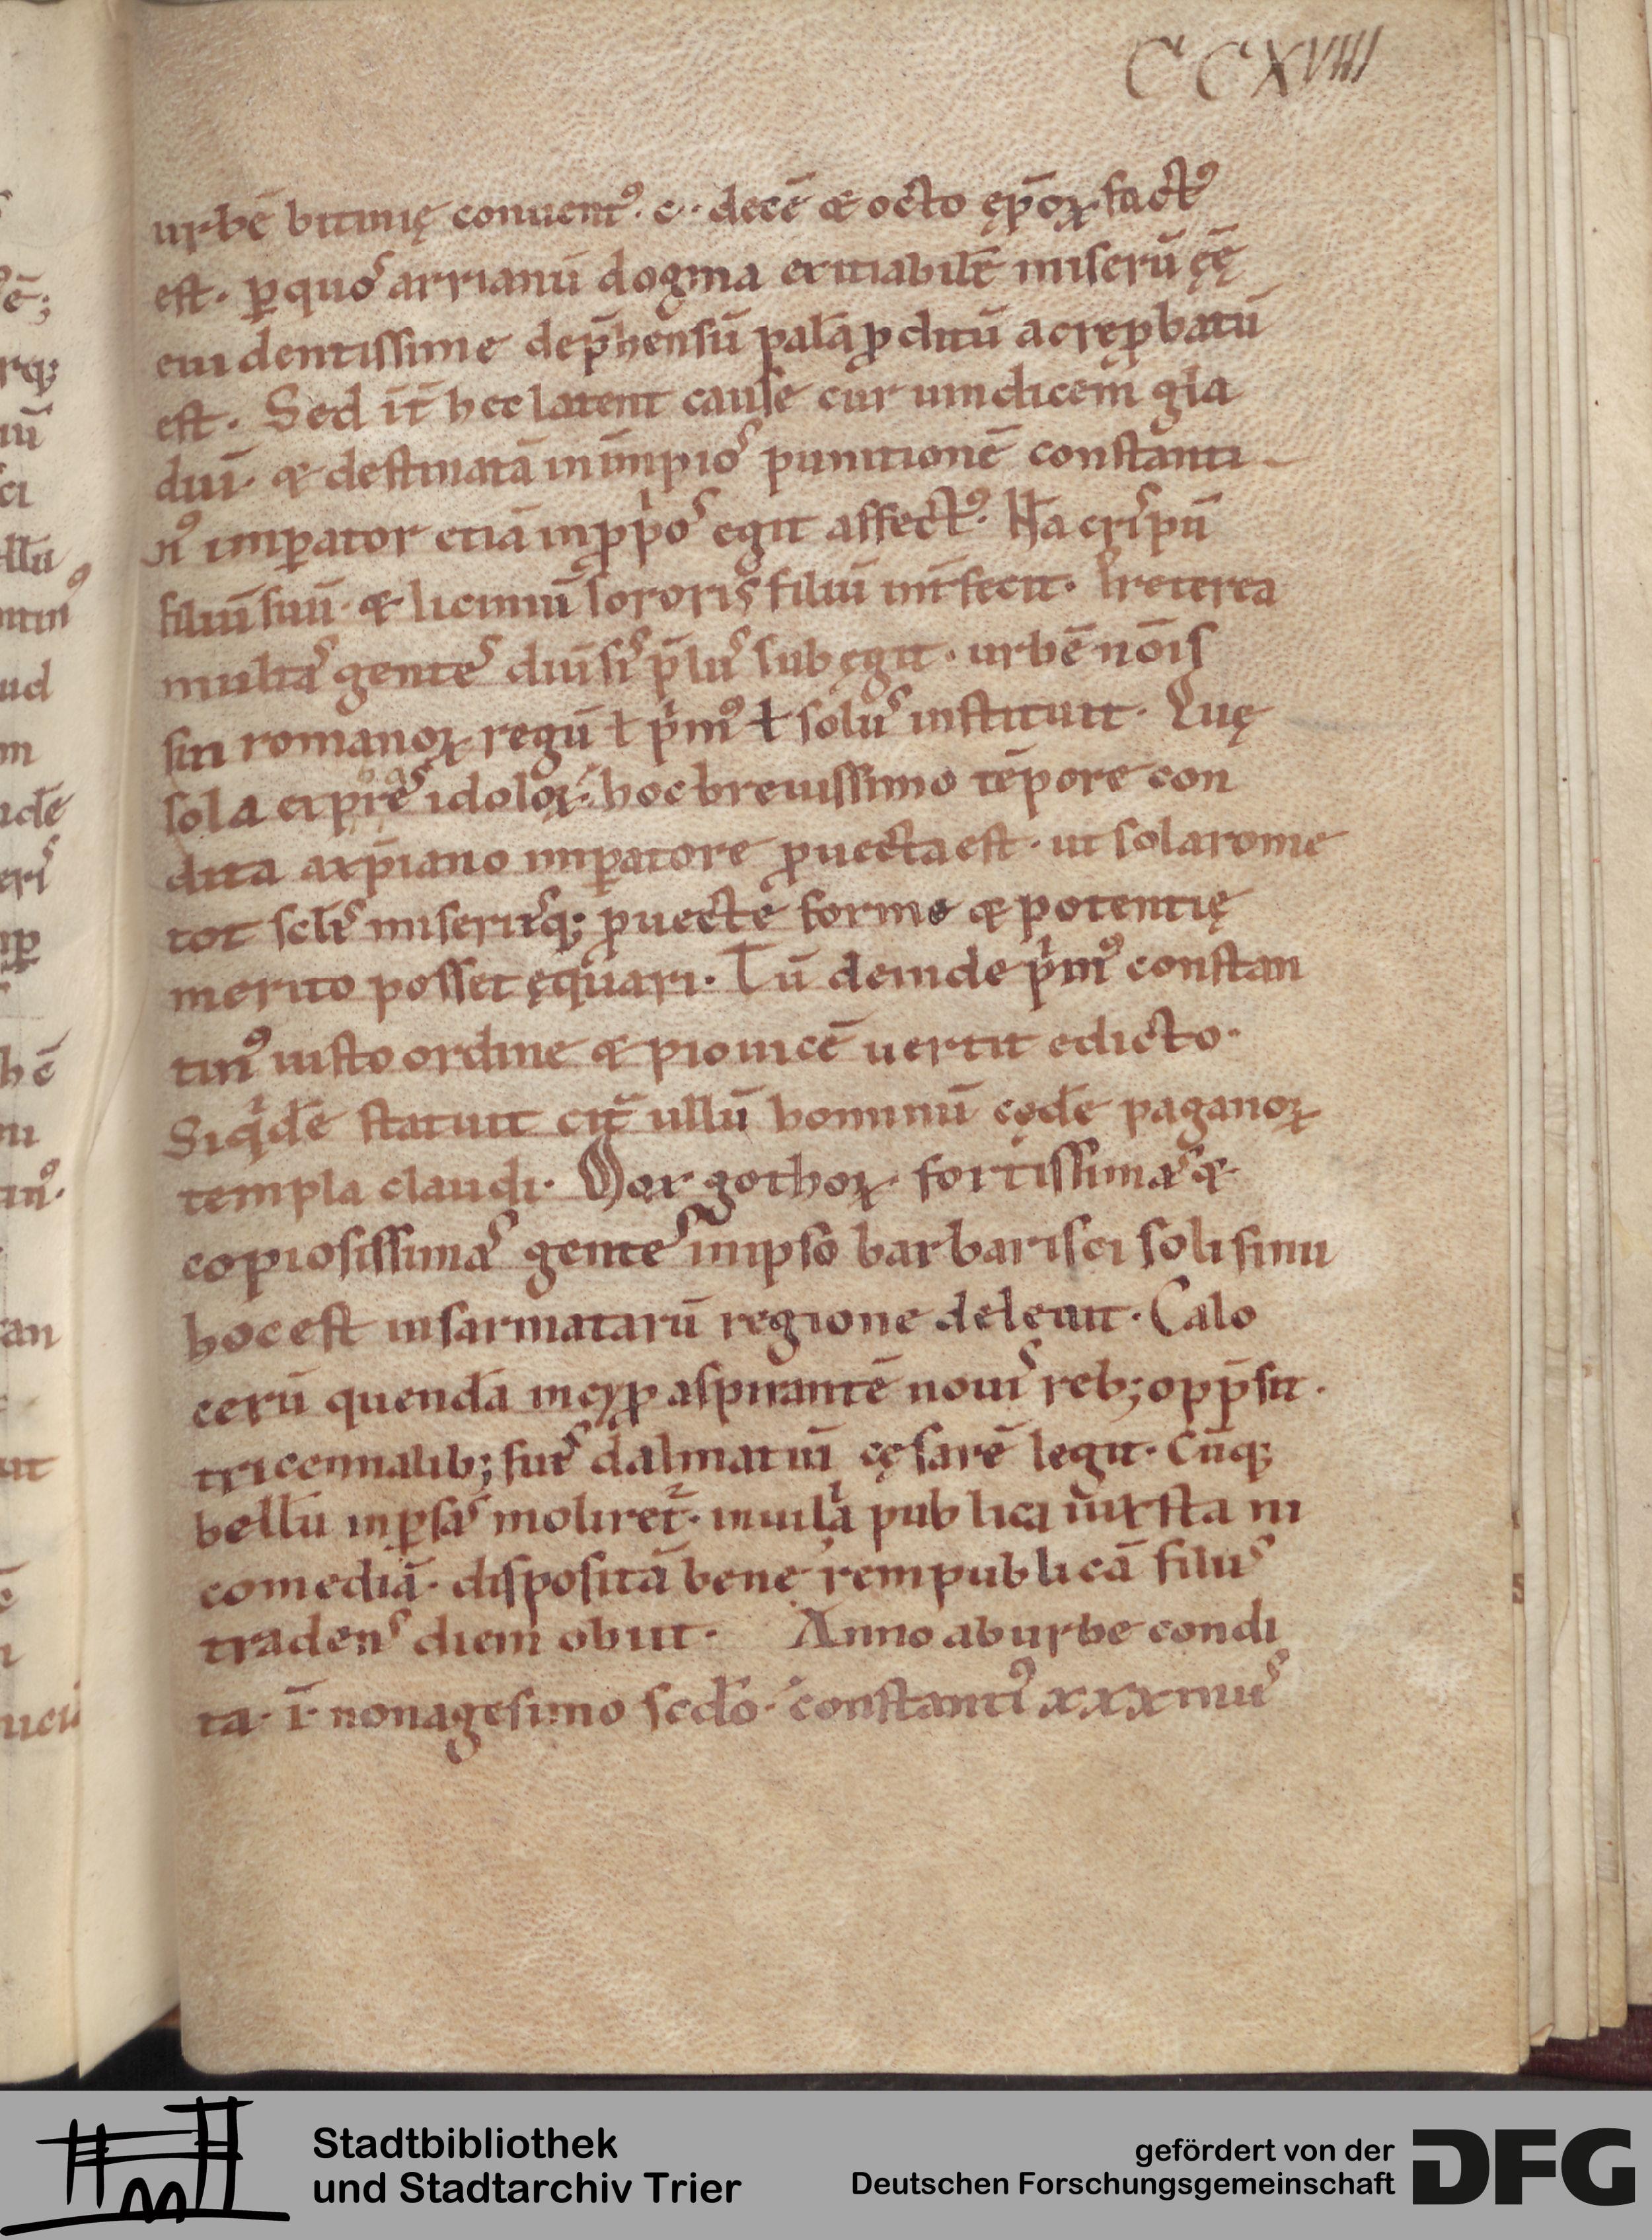 CCXVIII
urbē bitinię conuentꝰ. c.. decē & octo ęp̄oꝝ factꝰ
est. ꝑ quos arrianū dogma exitiabilē miserū ęę̄
euidentissime dep̄hensū palā ꝓditū ac reꝓbatū
est. Sed īt hec latent cause cur uindicem gla
diū. & destinatā in impios punitionē constanti
nꝰ imꝑator etiā in ꝓpͥos egit affectꝰ. Nā crispū
filiū suū. & liciniū sororis filiū int̄fecit. Preterea
multas gentes diuisis p̄lus subęgit. urbē nōis
sui romanoꝝ regū ł pͥmꝰ ł solus instituit. Quę
sola expͬes idoloꝝ. hoc breuissimo tēpore con
dita a xp̄iano imꝑatore ꝓuecta est. ut sola rome
tot sclis miseriisq; ꝓuecte forme & potentię
merito posset ęquari. Tū deinde pͥmꝰ constan
tinꝰ iusto ordine & pio uicē uertit edicto.
Siqͥdē statuit citͣ ullū hominū cędē paganoꝝ
templa claudi. Mox gothoꝝ fortissimas &
copiosissimas gentes in ipso barbarisci soli sinu
hoc est in sarmatarū regione deleuit. Calo
cerū quendā in cyꝓ aspirantē nouis reb; opp̄sit.
tricennalib; suis dalmatiū cęsarē legit. Cūq;
bellū in ꝑsas moliret̄. in uilla publica iuxta ni
comediā. dispositā bene rempublicā filiis
tradens diem obiit. Anno ab urbe condi
ta. ī. nonagesimo scdo. constantiꝰ xxxiiiiꝰ
Stadtbibliothek
und Stadtarchiv Trier
gefördert von der
Deutschen Forschungsgemeinschaft
DFG